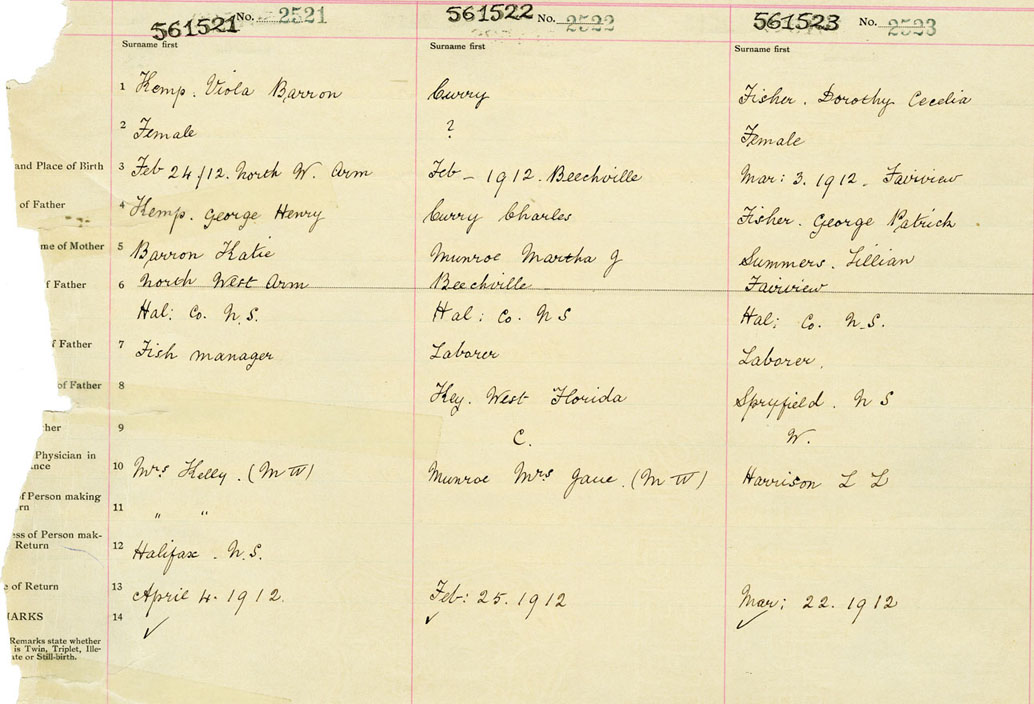 561521 No. 2521
561522 No. 2522
561523 No. 2523
Surname first
Surname first
Surname first
1 Kemp. Viola Barron
Curry
Fisher. Dorothy Cecelia
2 Female
?
Female
and Place of Birth 3 Feb 24/12. North W. Arm
Feb - 1912. Beechville
Mar: 3. 1912. Fairview
of Father 4 Kemp. George Henry
Curry Charles
Fisher. George Patrick
me of Mother 5 Barron Katie
Munroe Martha J
Summers. Lillian
f Father 6 North West Arm
Beechville
Fairview
Hal: Co. N.S.
Hal: Co. N S
Hal; Co. N.S.
f Father 7 Fish manager
Laborer
Laborer.
of Father 8
Key. West Florida
Spryfield. N S
her 9
C.
W.
Physician in
nce 10 Mrs Kelly. (M W)
Munroe Mrs Jane. (M W)
Harrison L L
of Person making
rn 11 " "
ess of Person mak-
Return 12 Halifax. N.S.
e of Return 13 April 4. 1912.
Feb: 25. 1912
Mar; 22. 1912
MARKS 14 ✓
✓
✓
Remarks state whether
is Twin, Triplet, Ille-
ate or Still-birth.